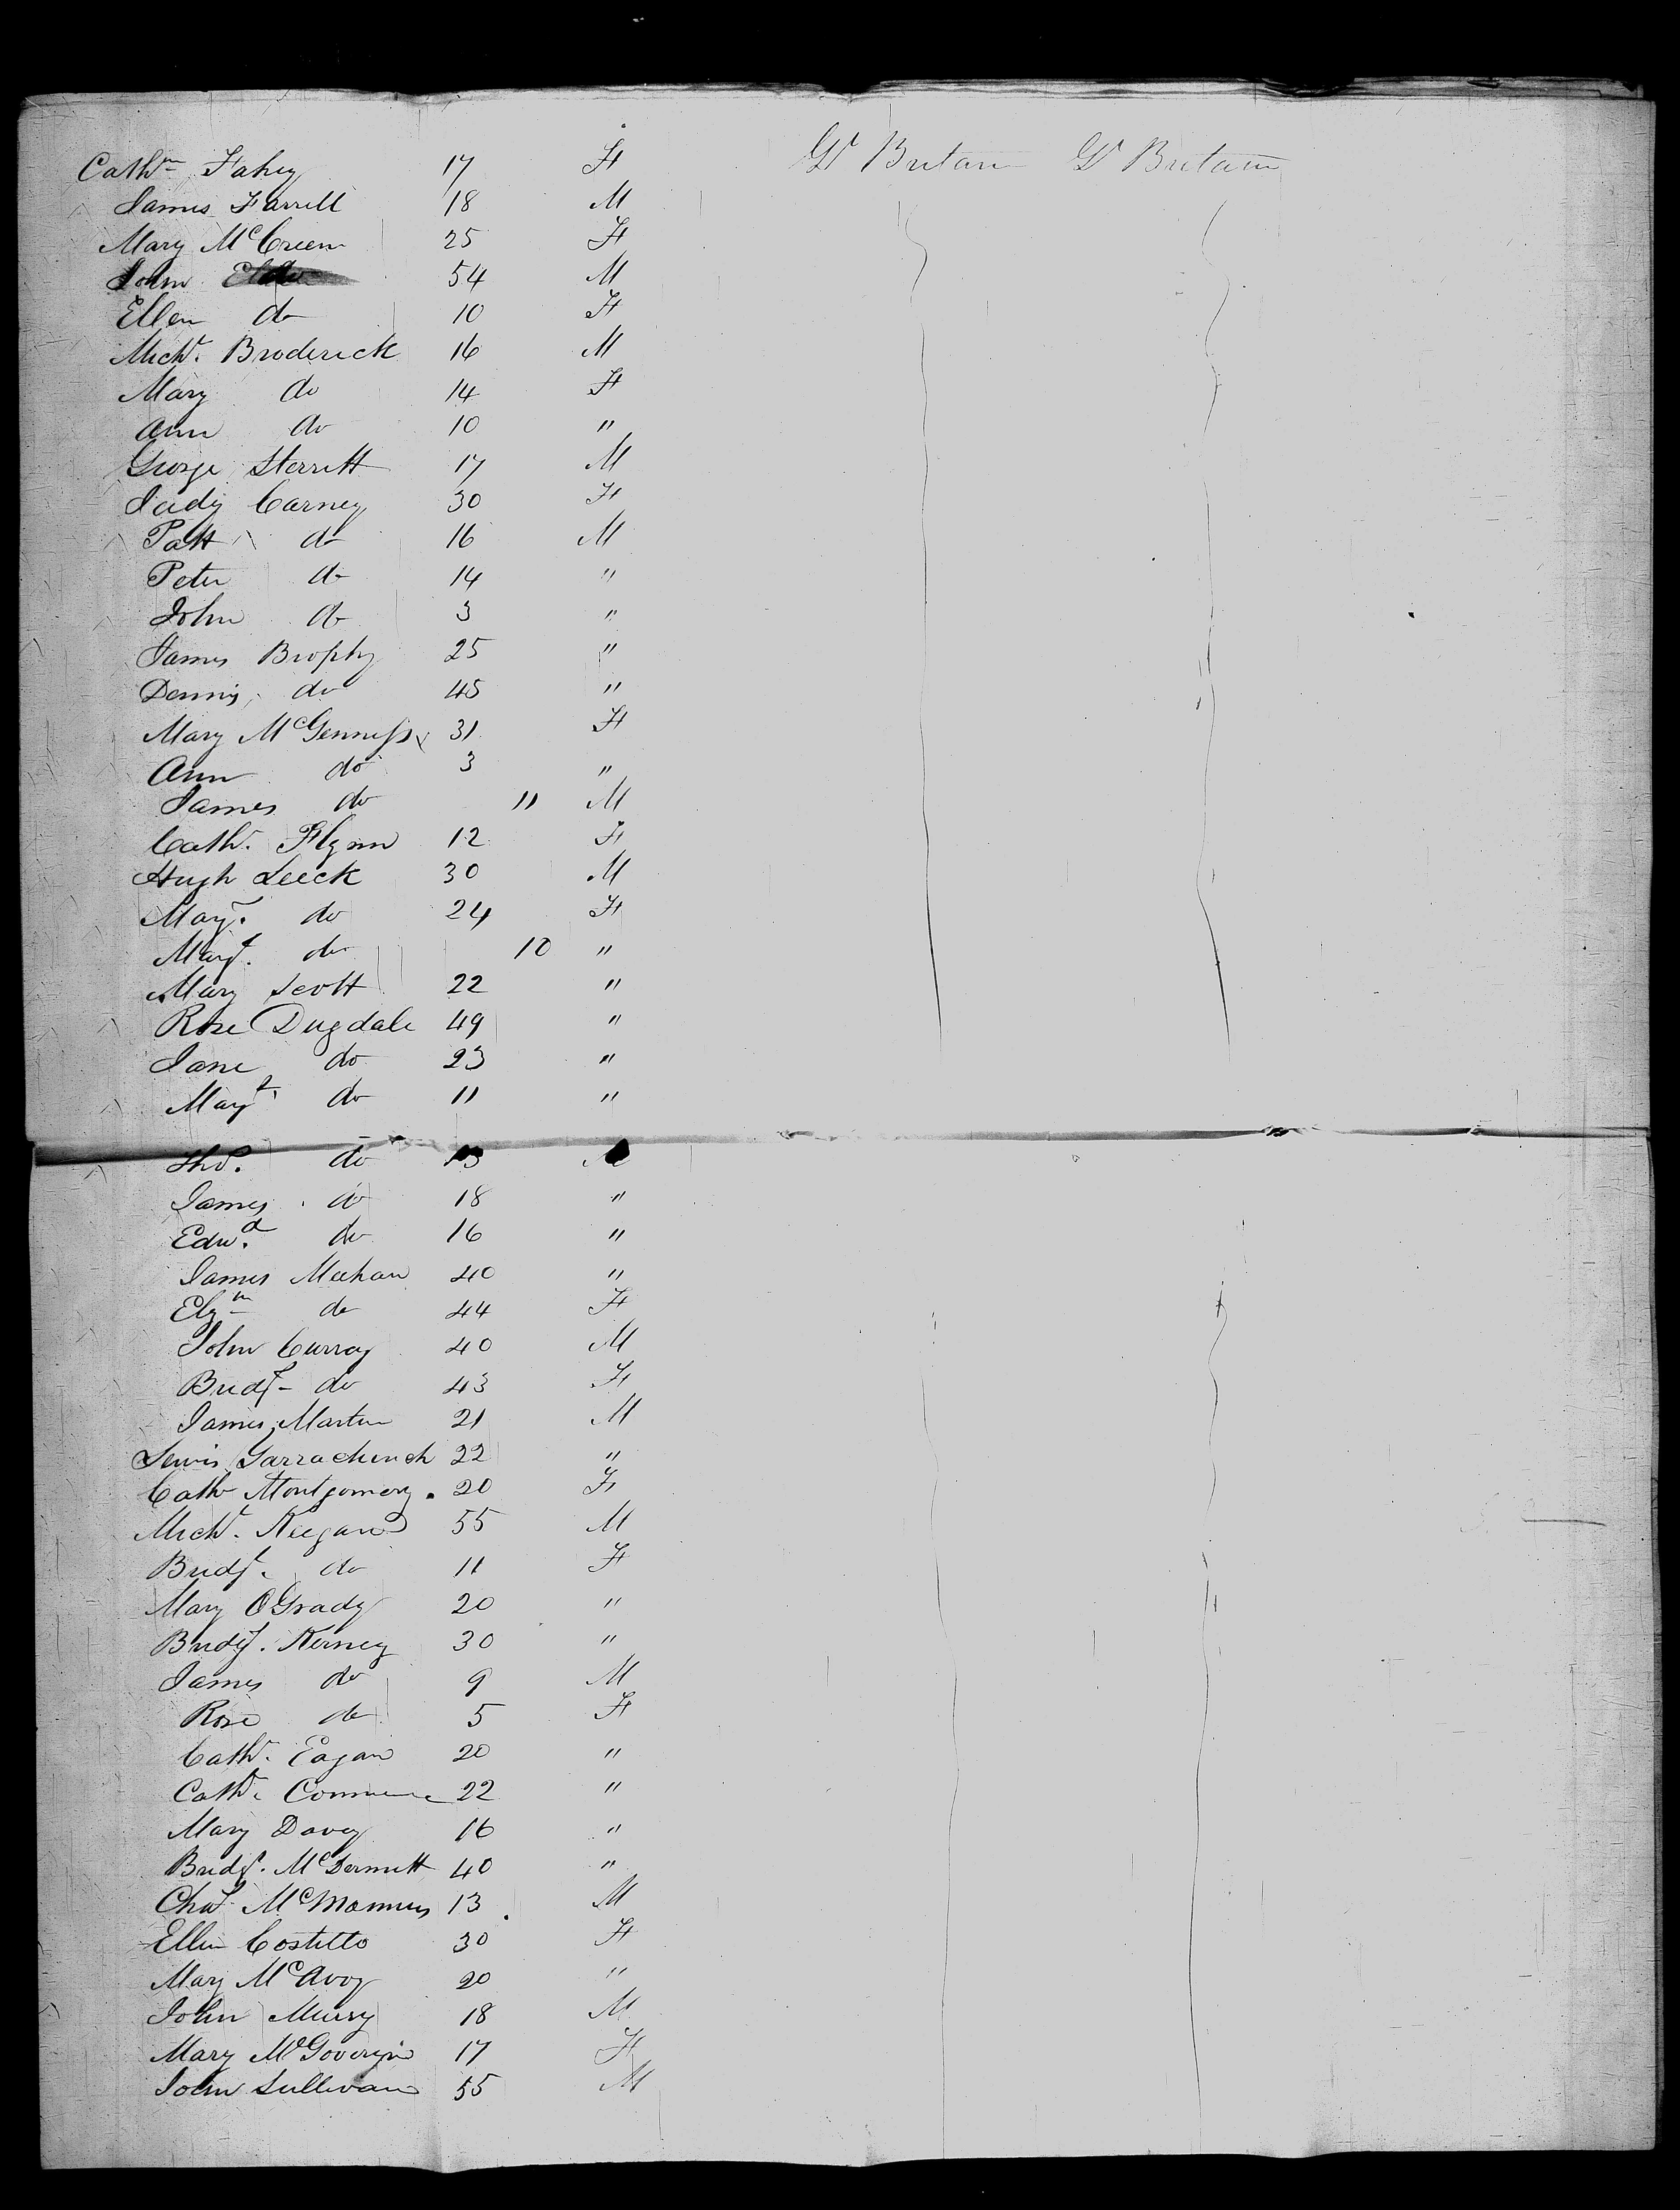 Cathn Fahey 17 F Gt Britain Gt Britain
James Farrell 18 M
Mary McCreen 25 F
John 54 M
Ellen do 10 F
Michl. Broderick 16 M
Mary do 14 F
Ann do 10 "
George Sterritt 17 M
Judy Carney 30 F
Patt do 16 M
Peter do 14 "
John do 3 "
James Brophy 25 "
Dennis do 45 "
Mary McGenness 31 F
Ann do 3 "
James do 11 M
Cathe. Flynn 12 F
Hugh Leeck 30 M
Mary. do 24 F
Margt. do 10 "
Mary Scott 22 "
Rose Dugdale 49 "
Jane do 23 "
Margt. do 11 "
Thos. do 13 M
James do 18 "
Edwd. do 16 "
James Meehan 40 "
Elzth do 44 F
John Curray 40 M
Bridgt do 43 F
James Martin 21 M
Lewis 22 "
Cath Montgomery. 20 F
Michl. Keegan 55 M
Bridgt. do 11 F
Mary OGrady 20 "
Bridgt. Kerney 30 "
James do 9 M
Rose do 5 F
Cathe. Eagan 20 "
Cathe. 22 "
Mary Davey 16 "
Bridgt. McDermott 40 "
Chas McManus 13 M
Ellen Costello 30 F
Mary McAvoy 20 "
John Murry 18 M
Mary McGovern 17 F
John Sullivan 55 M